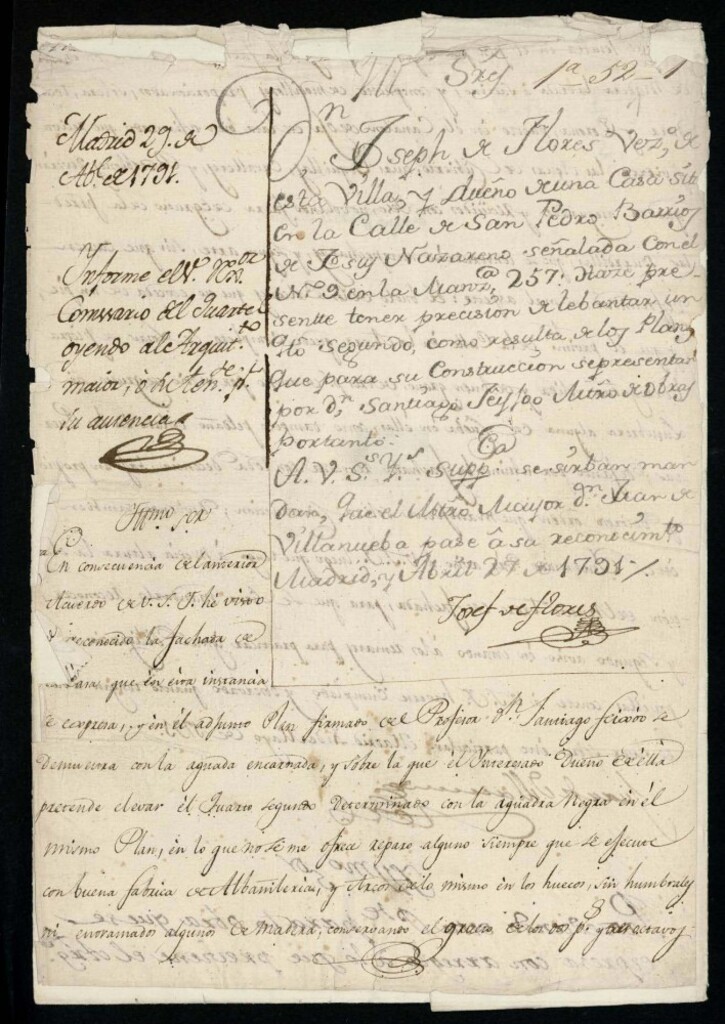 1ª 52 1
Dn Joseph de Flores Vezº de
esta Villa, y Dueño de una Casa sita
en la Calle de San Pedro Barrio
de Jesus Nazareno señalada con el
Nº 9 en la Manzª 257. Haze pre
sentte tener precision de lebantar un
qtto segundo, como resulta de los Planos
que para su Construccion se presentan
por dn Santiago Feijoo Mtro de obras
por tanto.
A V. S.S. Yˢ Suppca se sirban man
dar, que el Mtro Mayor dn Juan de
Villanueba pase â su reconocimto
Madrid, y Abril 27 de 1791
Josef de Flores
Madrid 29 de
Abl de 1791.
Ynforme el
Comisario del Quartel
oyendo al Arquitto
maior, ò su Tente pr
su ausencia
Yttmo Sor
En consecuencia del anterior
Acuerdo de V. S. Y. hé visto
y reconocido la fachada de
Casa, que en esta instancia
se expresa, y en el adjunto Plan firmado del Profesor dn Santiago Feixoó se
demuestra con la aguada encarnada, y sobre la que el Interesado Dueño de ella
pretende elevar el Quarto segundo Determinado con la aguada Negra en el
mismo Plan, en lo que no se me ofrece reparo alguno siempre que se execute
con buena fabrica de Albañileria, y Arcos de lo mismo en los huecos, sin humbrales
ni enramados algunos de Madera, conservando el grueso de los dos ps y octavos